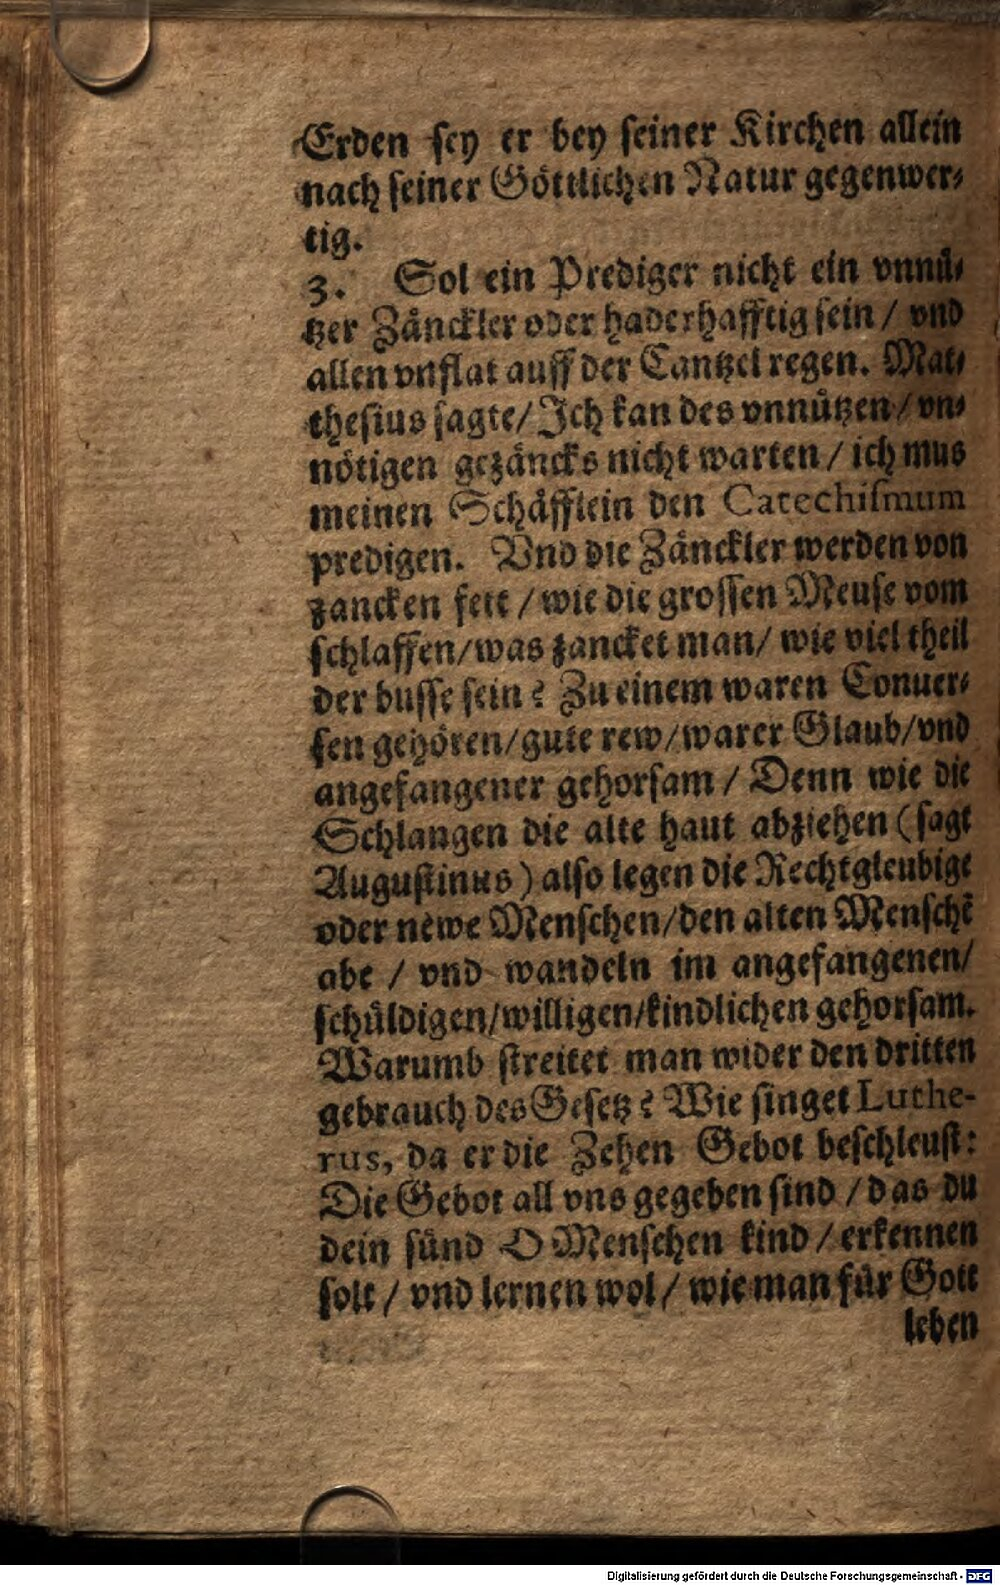 Erden sey er bey seiner Kirchen allein
nach seiner Göttlichen Natur gegenwer⸗
tig.
3. Sol ein Prediger nicht ein vnnuͤ⸗
tzer Zänckler oder haderhafftig sein / vnd
allen vnflat auff der Cantzel regen. Mat⸗
thesius sagte/ Ich kan des vnnuͤtzen/ vn⸗
nötigen gezäncks nicht warten / ich mus
meinen Schäfflein den Catechismum
predigen. Vnd die Zänckler werden von
zancken fett / wie die grossen Meuse vom
schlaffen/was zancket man/ wie viel theil
der busse sein? Zu einem waren Conuer⸗
sen gehören/gute rew/warer Glaub/vnd
angefangener gehorsam / Denn wie die
Schlangen die alte haut abziehen (sagt
Augustinus) also legen die Rechtgleubige
oder newe Menschen/den alten Menschẽ
abe / vnd wandeln im angefangenen/
schuͤldigen/willigen/kindlichen gehorsam.
Warumb streitet man wider den dritten
gebrauch des Gesetz? Wie singet Luthe-
rus, da er die Zehen Gebot beschleust:
Die Gebot all vns gegeben sind / das du
dein suͤnd O Menschen kind / erkennen
solt / vnd lernen wol / wie man fuͤr Gott
leben
Digitalisierung gefördert durch die Deutsche Forschungsgemeinschaft - DFG